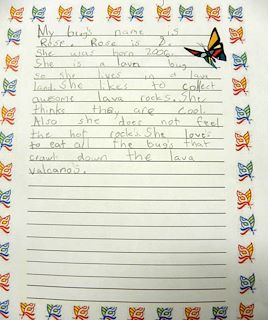 My bug's name is
Rose. Rose is 8.
She was born 2000.
She is a lava bug
so she lives in a lava
land. She likes to collect
awesome lava rocks. She
thinks they are cool.
Also she does not feel
the hot rocks. She loves
to eat all the bugs that
crawl down the lava
valcanos.